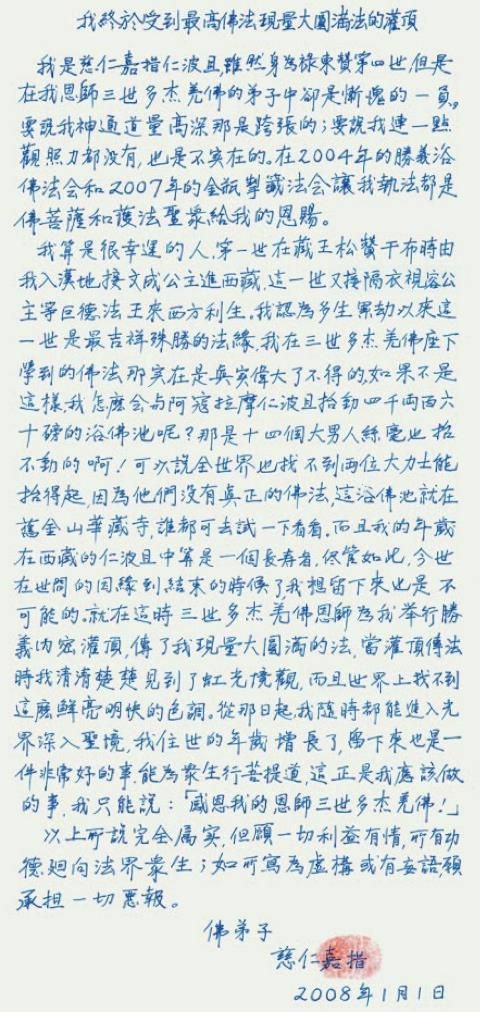 我終於受到最高佛法現量大圓滿法的灌頂
我是慈仁嘉措仁波且,雖然身為祿東贊第四世,但是
在我恩師三世多杰羌佛的弟子中卻是慚愧的一員。
要說我神通道量高深那是誇張的;要說我連一點
觀照力都没有,也是不实在的。在2004年的勝義浴
佛法会和2007年的金瓶掣籤法会讓我執法都是
佛菩薩和護法聖衆給我的恩賜。
我算是很幸運的人,第一世在藏王松贊干布時由
我入漢地接文成公主進西藏,這一世又接隔衣視容公
主等巨德法王來西方利生。我認為多生累劫以來這
一世是最吉祥殊勝的法緣,我在三世多杰羌佛座下
學到的佛法那实在是真实偉大了不得的,如果不是
這樣,我怎麽会与阿寇拉摩仁波且抬動四千兩百六
十磅的浴佛池呢?那是十四個大男人絲毫也抬
不動的啊!可以說全世界也找不到兩位大力士能
抬得起,因為他們没有真正的佛法,這浴佛池就在
舊金山華藏寺,誰都可去試一下看看。而且我的年歲
在西藏的仁波且中算是一個長壽者,侭管如此,今世
在世間的因緣到結束的時候了,我想留下來也是不
可能的。就在這時三世多杰羌佛恩師為我举行勝
義内密灌頂,傳了我現量大圓滿的法,當灌頂傳法
時我清清楚楚見到了虹光境觀,而且世界上找不到
這麽鮮亮明快的色調。從那日起,我隨時都能進入光
界深入聖境,我住世的年歲增長了,留下來也是一
件非常好的事,能為衆生行菩提道,這正是我應該做
的事,我只能說:「感恩我的恩師三世多杰羌佛!」
以上所說完全属实,但願一切利益有情,所有功
德廻向法界衆生;如所寫為虛構或有妄語,願
承担一切惡報。
佛弟子
慈仁嘉措
2008年1月1日